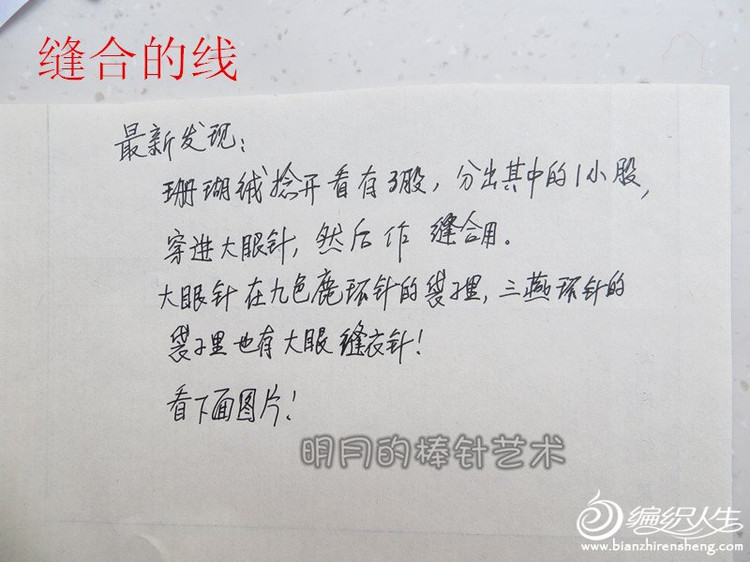 缝合的线
最新发现:
珊瑚绒捻开看有3股,分出其中的1小股,
穿进大眼针,然后作 缝合用。
大眼针在九色鹿环针的袋子里,三燕环针的
袋子里也有大眼缝衣针!
看下面图片!
明月的棒针艺术
编织人生
www.bianzhirensheng.com